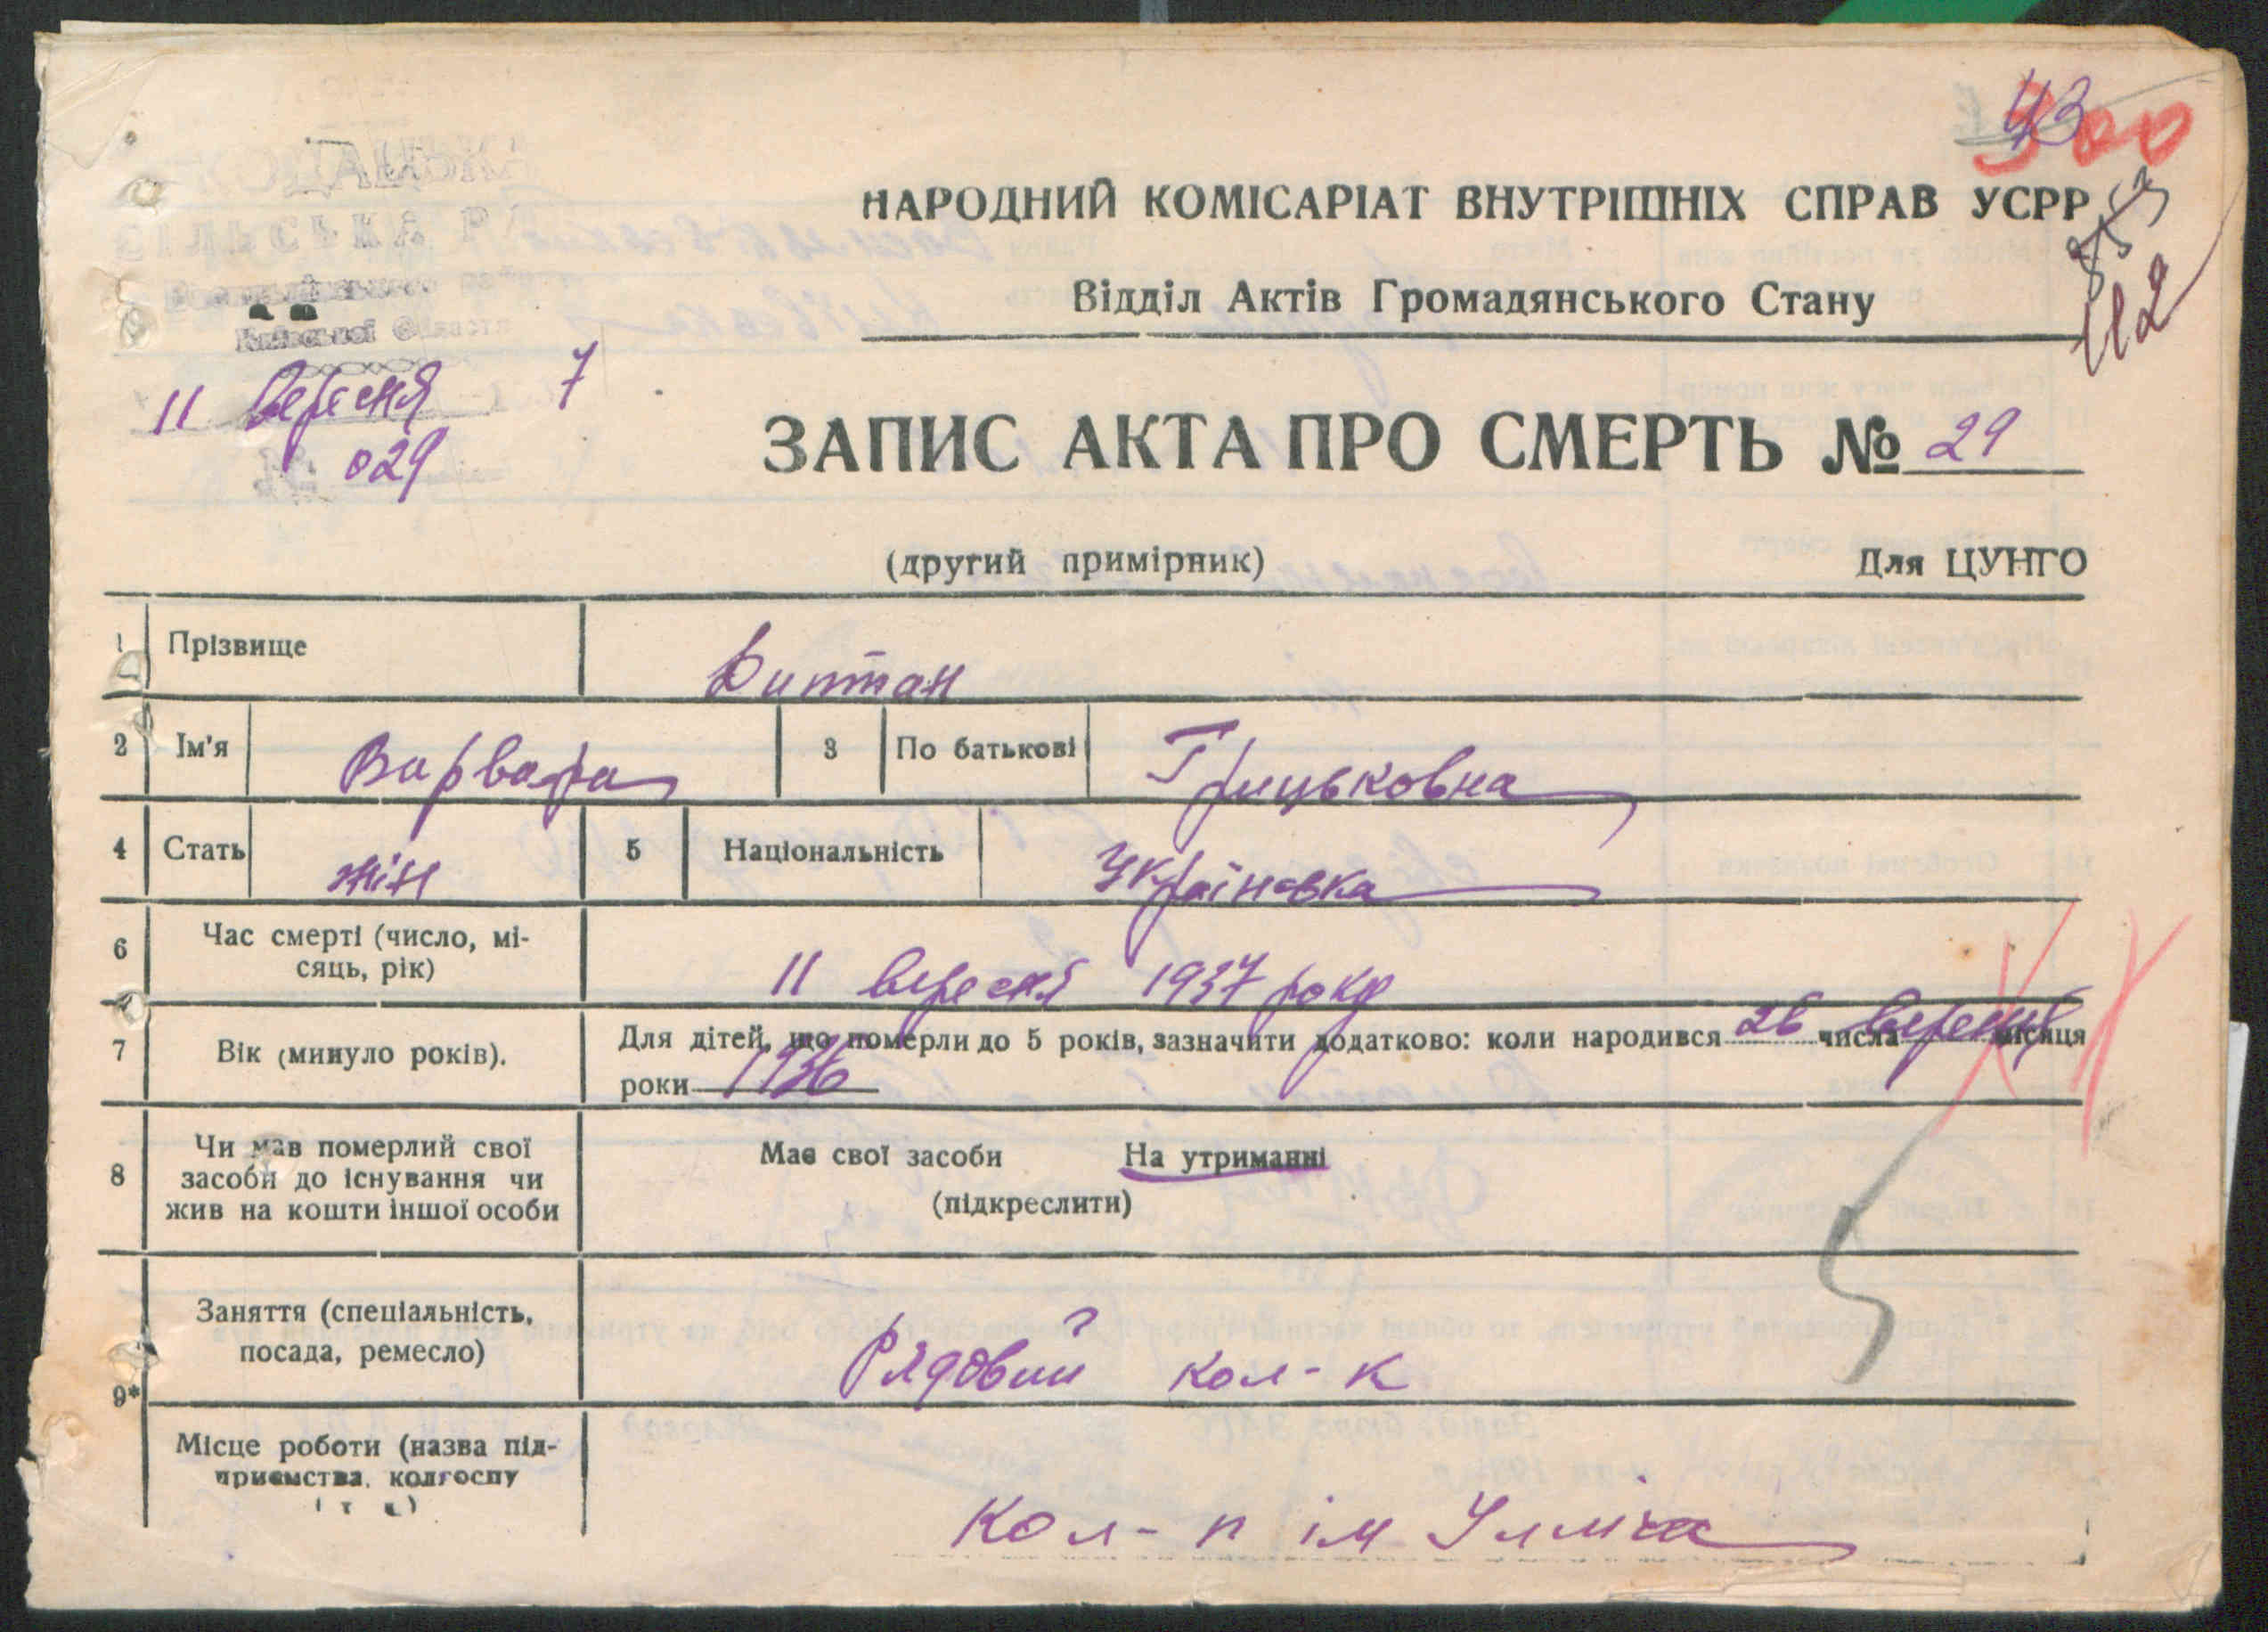 43
300
НАРОДНИЙ КОМІСАРІАТ ВНУТРІШНІХ СПРАВ УСРР
Відділ Актів Громадянського Стану
СІЛЬСЬКА
Київської Області
11 Вересня 7
029
112
ЗАПИС АКТА ПРО СМЕРТЬ № 29
(другий примірник) Для ЦУНГО
1 Прізвище Диптан
2 Ім'я Варвара 3 По батькові Грицьковна
4 Стать жін 5 Національність Україновка
6 Час смерті (число, мі-
сяць, рік) 11 вересня 1937 року
7 Вік (минуло років). Для дітей, що померли до 5 років, зазначити додатково: коли народився 26 числа вересня місяця
роки 1936
8 Чи мав померлий свої
засоби до існування чи
жив на кошти іншої особи
Має свої засоби На утриманні
(підкреслити)
5
9* Заняття (спеціальність,
посада, ремесло) Рядовий кол-к
Місце роботи (назва під-
приємства, колгоспу
і т. д.)
Кол-п ім Ілліча